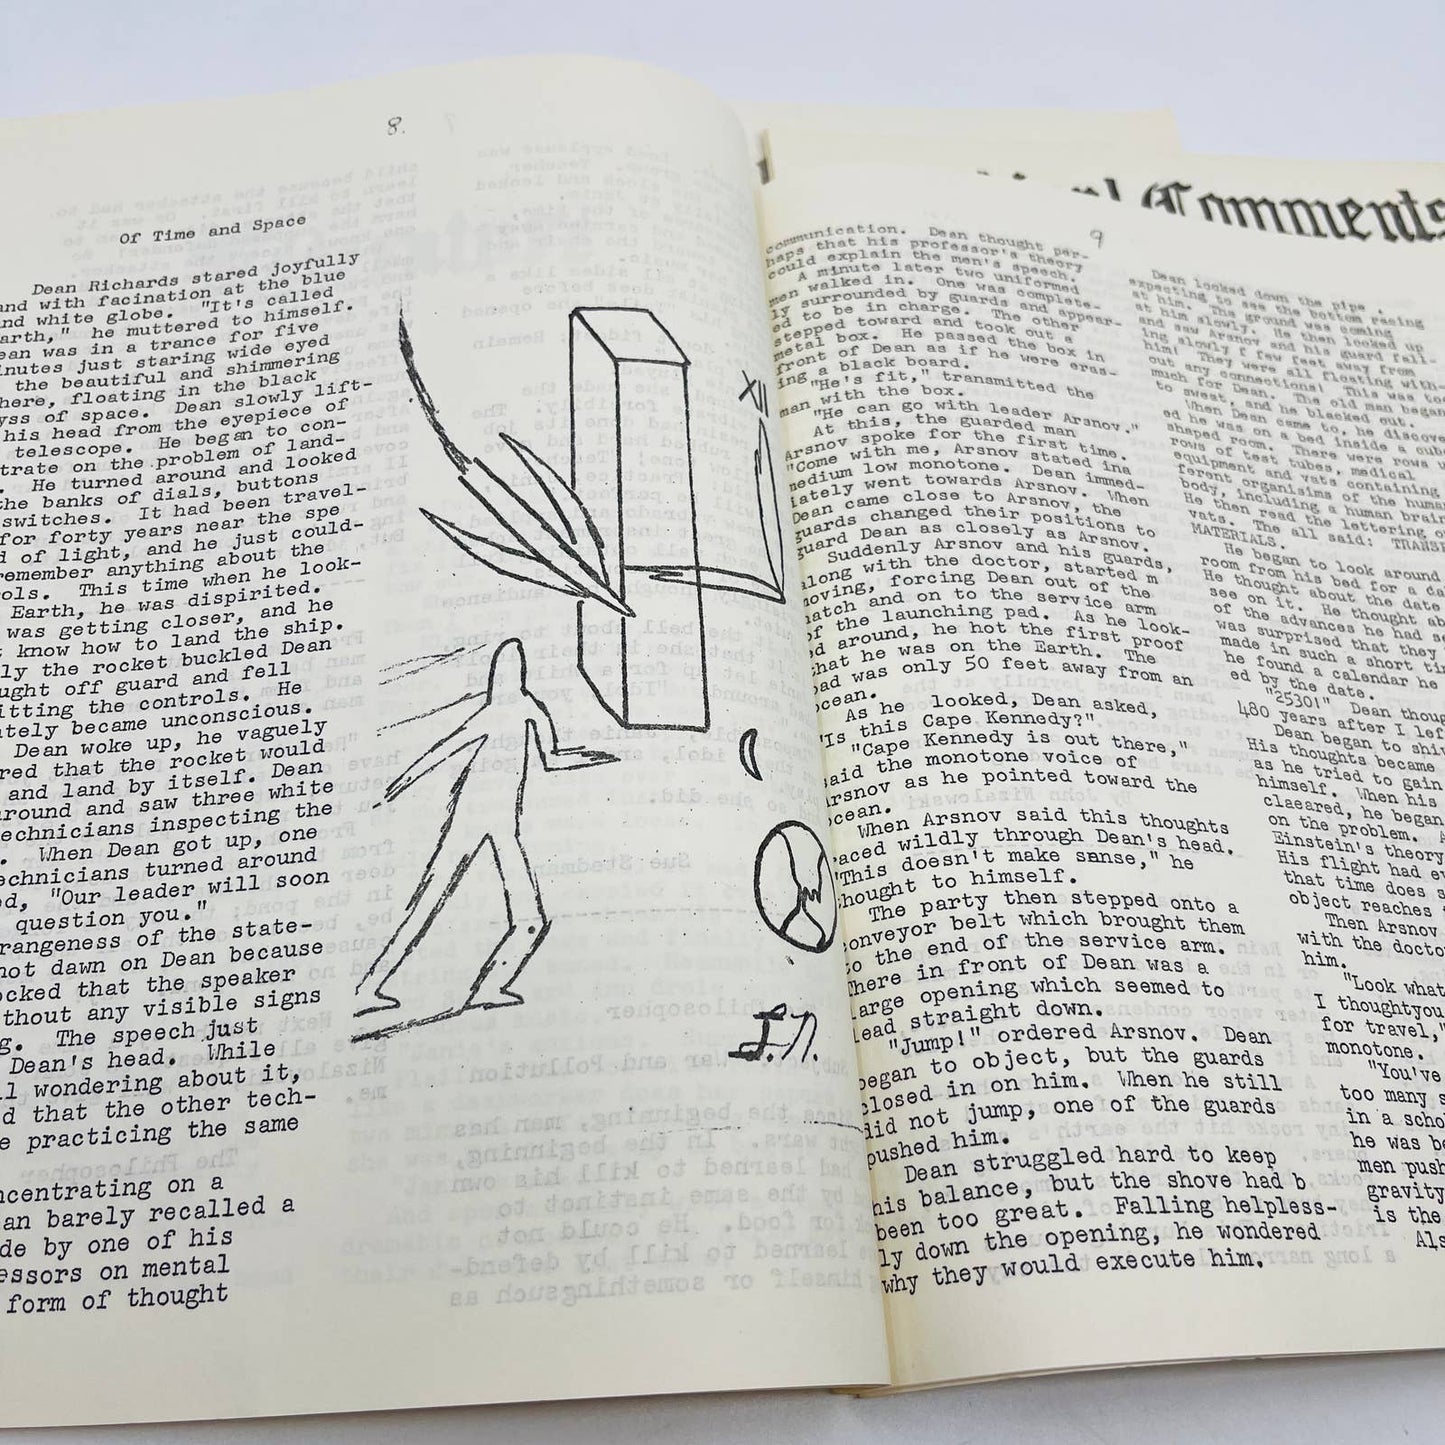 8.
Of Time and Space
Dean Richards stared joyfully
and with facination at the blue
and white globe. "It's called
arth," he muttered to himself.
ean was in a trance for five
nutes just staring wide eyed
the beautiful and shimmering
here, floating in the black
yss of space. Dean slowly lift-
his head from the eyepiece of
telescope. He began to con-
trate on the problem of land-
. He turned around and looked
the banks of dials, buttons
switches. It had been travel-
for forty years near the spe
d of light, and he just could-
remember anything about the
ols. This time when he look-
Earth, he was dispirited.
was getting closer, and he
t know how to land the ship.
ly the rocket buckled Dean
ught off guard and fell
itting the controls. He
ately became unconscious.
Dean woke up, he vaguely
red that the rocket would
and land by itself. Dean
around and saw three white
echnicians inspecting the
. When Dean got up, one
echnicians turned around
ed, "Our leader will soon
question you."
rangeness of the state-
not dawn on Dean because
ocked that the speaker
thout any visible signs
g. The speech just
Dean's head. While
ll wondering about it,
d that the other tech-
e practicing the same
ncentrating on a
an barely recalled a
de by one of his
essors on mental
form of thought
XII
L.N.
Comments
9
communication. Dean thought per-
haps that his professor's theory
could explain the men's speech.
A minute later two uniformed
men walked in. One was complete-
ly surrounded by guards and appear-
ed to be in charge. The other
stepped toward and took out a
metal box. He passed the box in
front of Dean as if he were eras-
ing a black board.
"He's fit," transmitted the
man with the box.
"He can go with leader Arsnov."
At this, the guarded man
Arsnov spoke for the first time.
"Come with me, Arsnov stated ina
medium low monotone. Dean immed-
iately went towards Arsnov. When
Dean came close to Arsnov, the
guards changed their positions to
guard Dean as closely as Arsnov.
Suddenly Arsnov and his guards,
along with the doctor, started m
moving, forcing Dean out of the
hatch and on to the service arm
of the launching pad. As he look-
ed around, he hot the first proof
that he was on the Earth. The
pad was only 50 feet away from an
ocean.
As he looked, Dean asked,
"Is this Cape Kennedy?"
"Cape Kennedy is out there,"
said the monotone voice of
Arsnov as he pointed toward the
ocean.
When Arsnov said this thoughts
raced wildly through Dean's head.
"This doesn't make sense," he
thought to himself.
The party then stepped onto a
conveyor belt which brought them
to the end of the service arm.
There in front of Dean was a
large opening which seemed to
lead straight down.
"Jump!" ordered Arsnov. Dean
began to object, but the guards
closed in on him. When he still
did not jump, one of the guards
pushed him.
Dean struggled hard to keep
his balance, but the shove had b
been too great. Falling helpless-
ly down the opening, he wondered
why they would execute him.
Dean looked down the pipe .
expecting to see the bottom racing
at him slowly. The ground was coming
him slowly. He then looked up
and saw Arsnov and his guard fall-
ing slowly f few feet away from
him! They were all floating with-
out any connections! This was too
much for Dean. The old man began
to sweat, and he blacked out.
When Dean came to, he discove
ed he was on a bed inside a cube
shaped room. There were rows
rows of test tubes, medical
equipment and vats containing
ferent organisims of the human
body, including a human brain
He then read the lettering o
vats. The all said: TRANS
MATERIALS.
He began to look around
room from his bed for a da
He thought about the date
see on it. He thought abo
of the advances he had se
was surprised that they
made in such a short tim
he found a calendar he
ed by the date.
"25301" Dean thoug
480 years after I lef
Dean began to shi
His thoughts became
as he tried to gain
himself. When his
claeared, he began
on the problem. A
Einstein's theory
His flight had ev
that time does s
object reaches
Then Arsnov
with the docto
him.
"Look what
I thoughtyou
for travel,"
monotone.
"You've
too many s
in a scho
he was be
men push
gravity
is the
Als